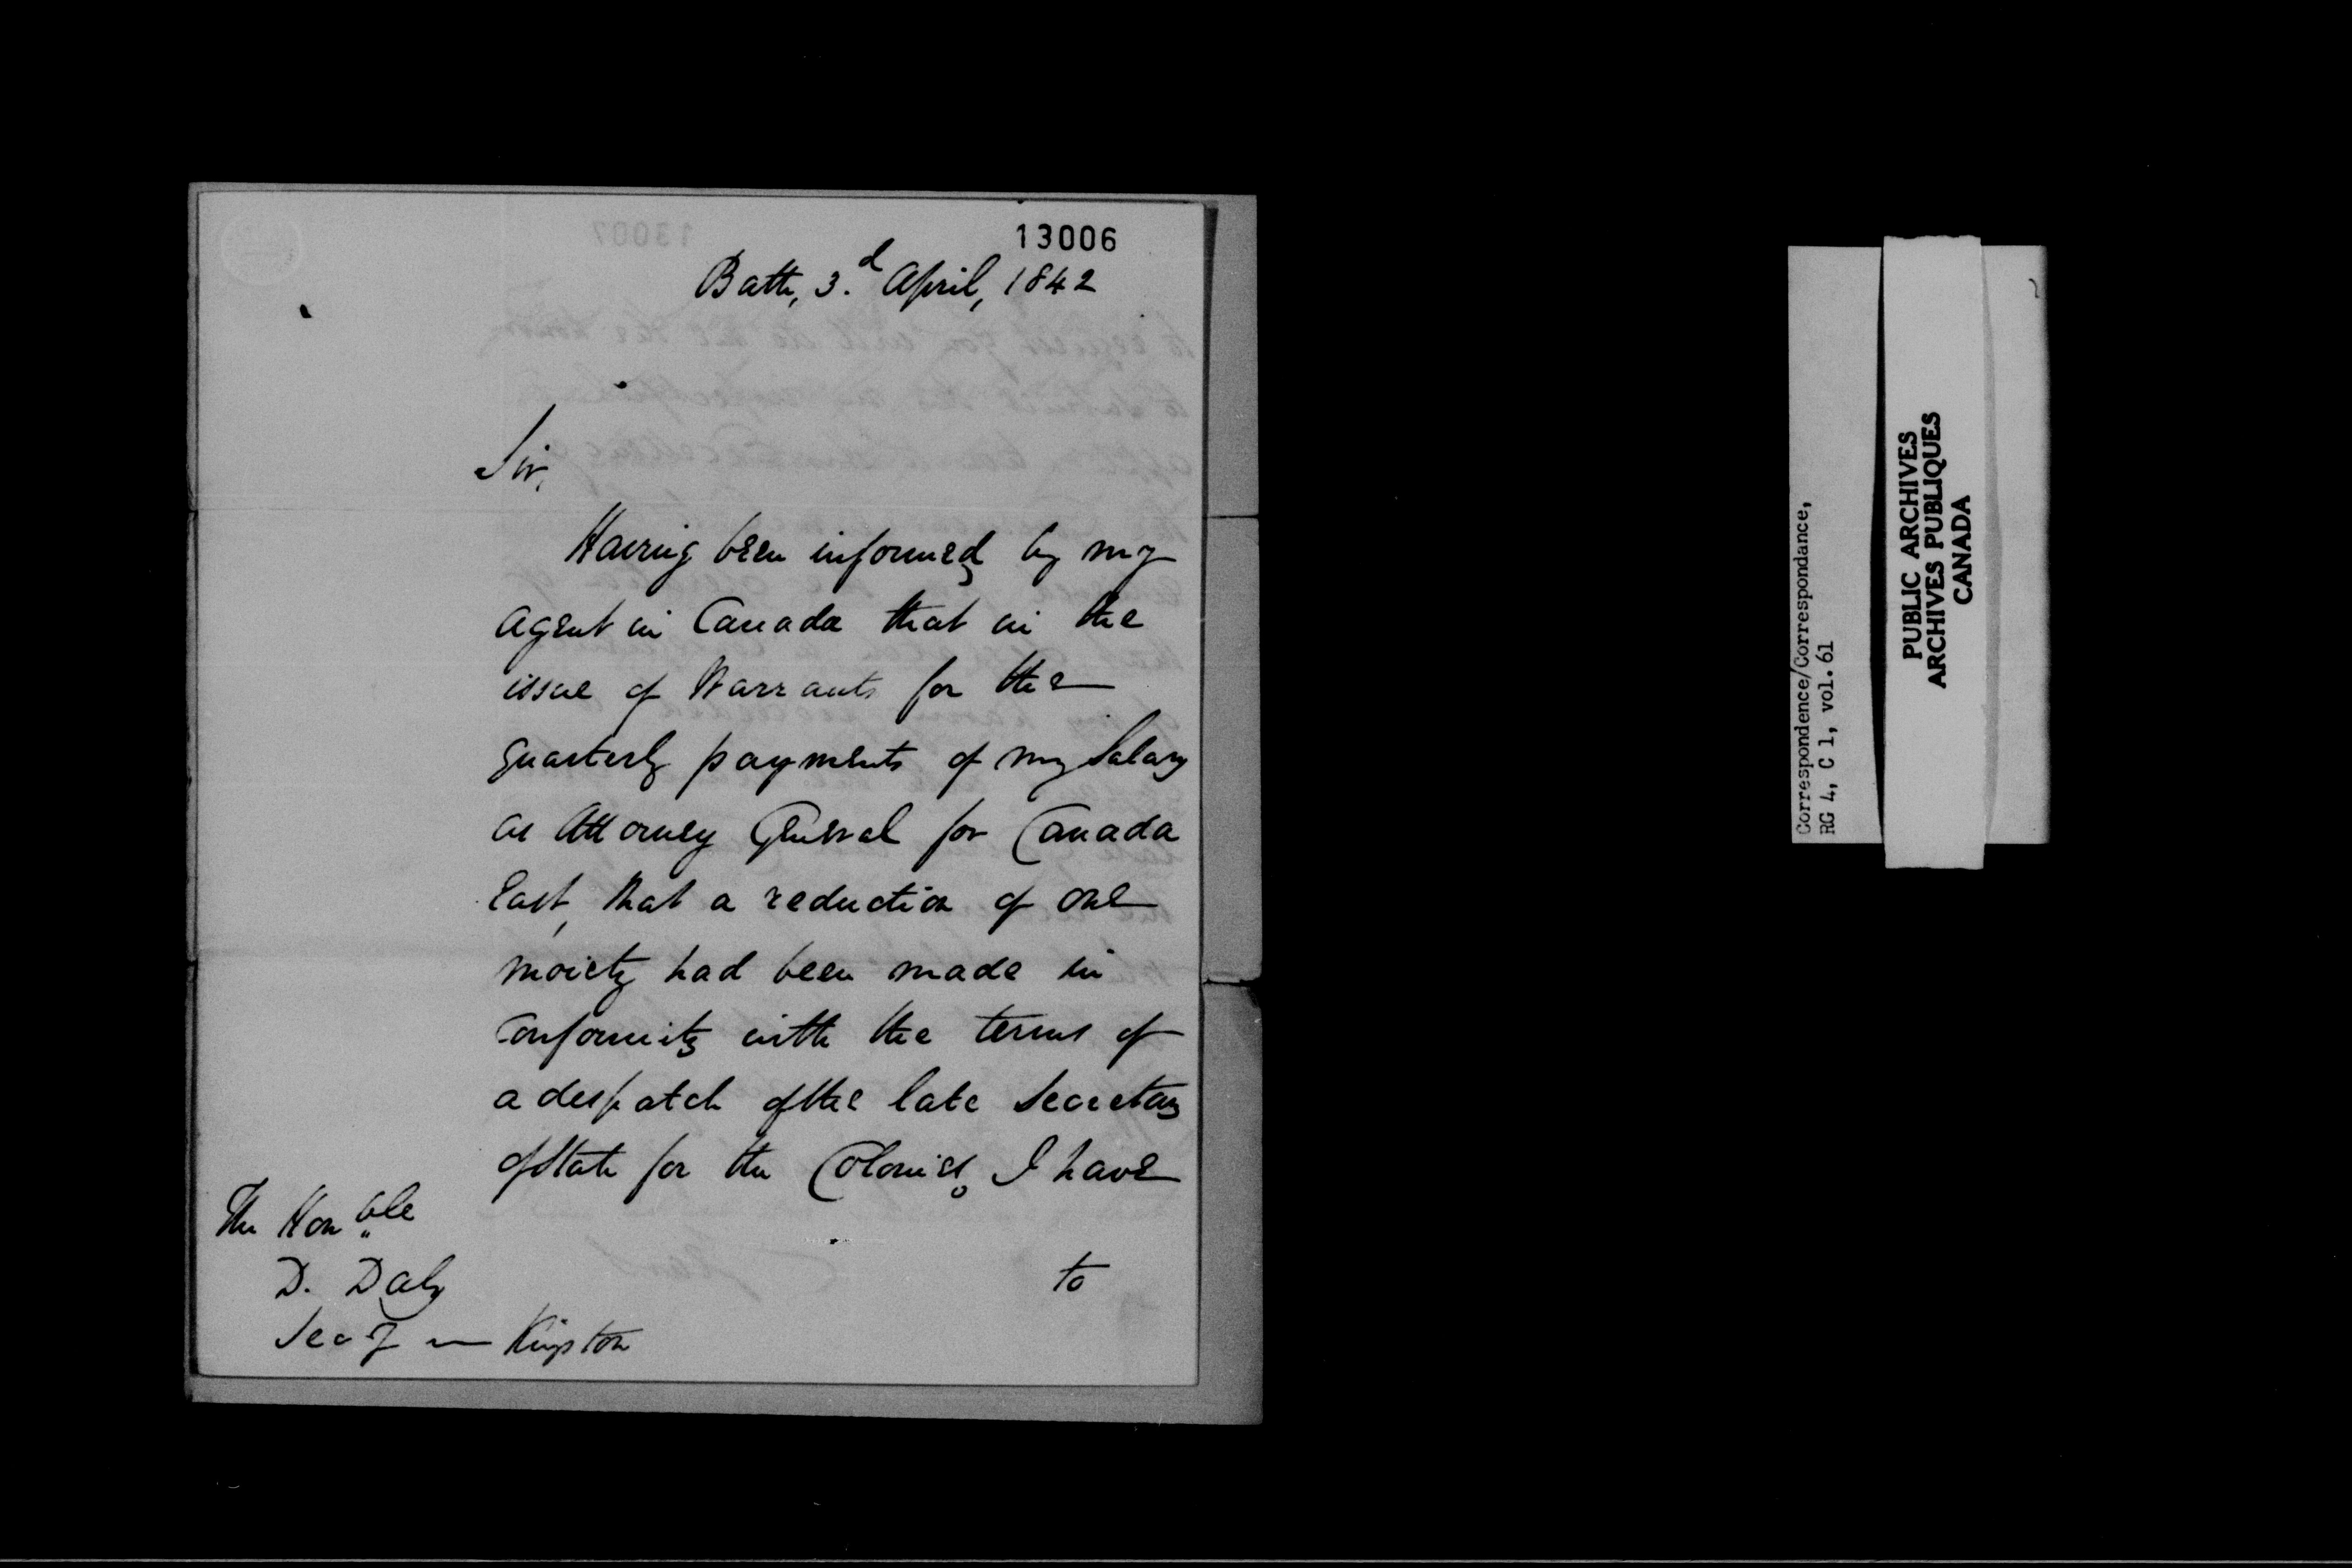 13006
Bath, 3.d April, 1842
Sir,
Having been informed by my
agent in Canada that in the
issue of Warrants for the
quarterly payments of my Salary
as Attorney General for Canada
East, that a reduction of one
moiety had been made in
conformity with the terms of
a despatch of the late Secretary
of State for the Colonies, I have
to
The Honble
D. Daly
Secy — Kingston
Correspondence/Correspondance,
RG 4, C 1, vol. 61
PUBLIC ARCHIVES
ARCHIVES PUBLIQUES
CANADA